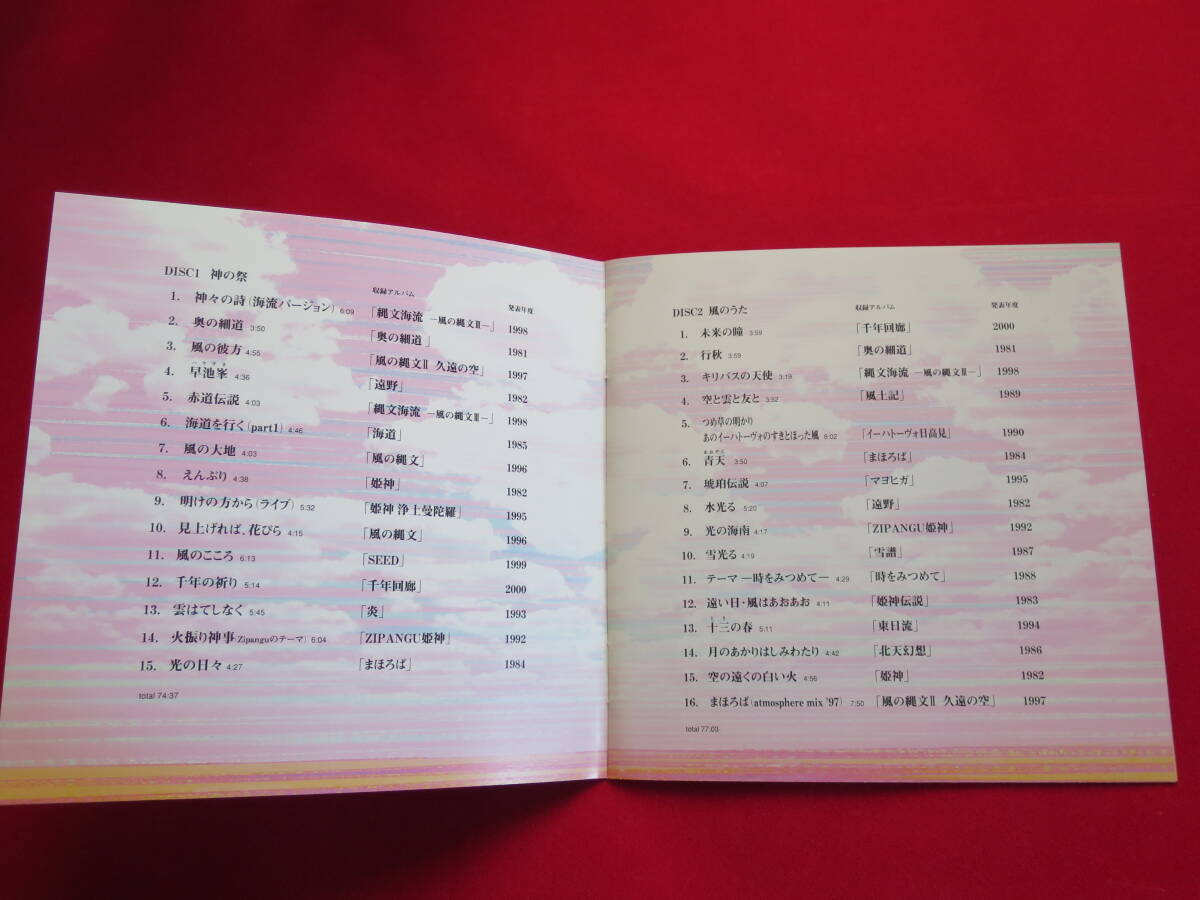 DISC1 神の祭 収録アルバム 発表年度
1. 神々の詩(海流バージョン) 6:09 「縄文海流 ―風の縄文Ⅲ―」 1998
2. 奥の細道 3:50 「奥の細道」 1981
3. 風の彼方 4:55 「風の縄文Ⅱ 久遠の空」 1997
ハヤチネ
4. 早池峯 4:36 「遠野」 1982
5. 赤道伝説 4:03 「縄文海流 ―風の縄文Ⅲ―」 1998
6. 海道を行く(part1) 4:46 「海道」 1985
7. 風の大地 4:03 「風の縄文」 1996
8. えんぶり 4:38 「姫神」 1982
9. 明けの方から(ライブ) 5:32 「姫神 浄土曼陀羅」 1995
10. 見上げれば、花びら 4:15 「風の縄文」 1996
11. 風のこころ 6:13 「SEED」 1999
12. 千年の祈り 5:14 「千年回廊」 2000
13. 雲はてしなく 5:45 「炎」 1993
14. 火振り神事(Zipanguのテーマ) 6:04 「ZIPANGU姫神」 1992
15. 光の日々 4:27 「まほろば」 1984
total 74:37
DISC2 風のうた 収録アルバム 発表年度
1. 未来の瞳 3:59 「千年回廊」 2000
2. 行秋 3:59 「奥の細道」 1981
3. キリバスの天使 3:19 「縄文海流 ―風の縄文Ⅲ―」 1998
4. 空と雲と友と 3:52 「風土記」 1989
5. つめ草の明かり
あのイーハトーヴォのすきとほった風 6:02 「イーハトーヴォ日高見」 1990
6. 青天 3:50 「まほろば」 1984
7. 琥珀伝説 4:07 「マヨヒガ」 1995
8. 水光る 5:20 「遠野」 1982
9. 光の海南 4:17 「ZIPANGU姫神」 1992
10. 雪光る 4:19 「雪譜」 1987
11. テーマ ―時をみつめて― 4:29 「時をみつめて」 1988
12. 遠い日・風はあおあお 4:11 「姫神伝説」 1983
13. 十三の春 5:11 「東日流」 1994
14. 月のあかりはしみわたり 4:42 「北天幻想」 1986
15. 空の遠くの白い火 4:56 「姫神」 1982
16. まほろば(atmosphere mix '97) 7:50 「風の縄文Ⅱ 久遠の空」 1997
total 77:03